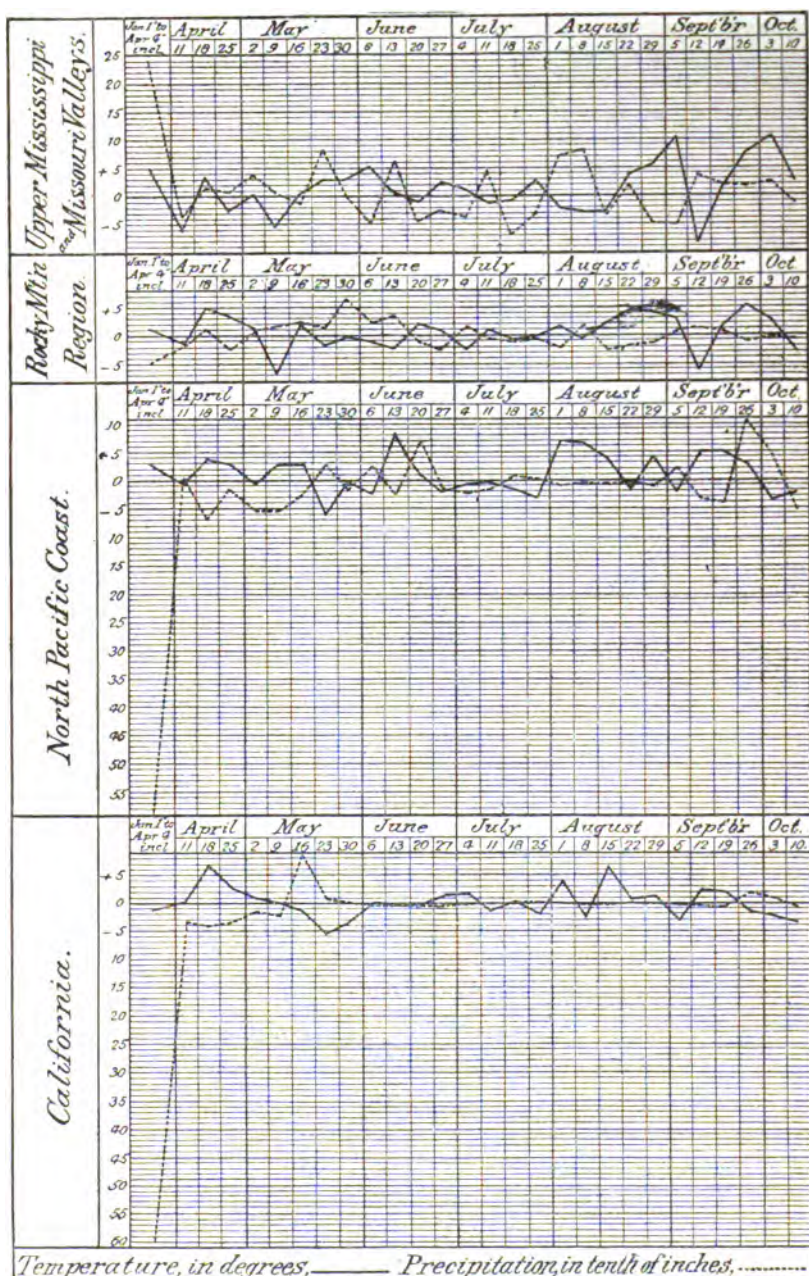 Upper Mississippi
and Missouri Valleys.
Jan. 1 to Apr 4 incl
April May June July August Sept'b'r Oct.
11 18 25 2 9 16 23 30 6 13 20 27 4 11 18 25 1 8 15 22 29 5 12 19 26 3 10
25
20
15
10
+ 5
0
- 5
Rocky Mtn
Region.
Jan. 1 to Apr 4 incl
April May June July August Sept'b'r Oct
11 18 25 2 9 16 23 30 6 13 20 27 4 11 18 25 1 8 15 22 29 5 12 19 26 3 10
+ 5
0
- 5
North Pacific Coast.
Jan. 1 to Apr 4 incl
April May June July August Sept'b'r Oct.
11 18 25 2 9 16 23 30 6 13 20 27 4 11 18 25 1 8 15 22 29 5 12 19 26 3 10
10
5
0
- 5
10
15
20
25
30
35
40
45
50
55
California.
Jan. 1 to Apr 4 incl
April May June July August Sept'b'r Oct.
11 18 25 2 9 16 23 30 6 13 20 27 4 11 18 25 1 8 15 22 29 5 12 19 26 3 10
+ 5
0
- 5
10
15
20
25
30
35
40
45
50
55
60
Temperature, in degrees, Precipitation, in tenth of inches,